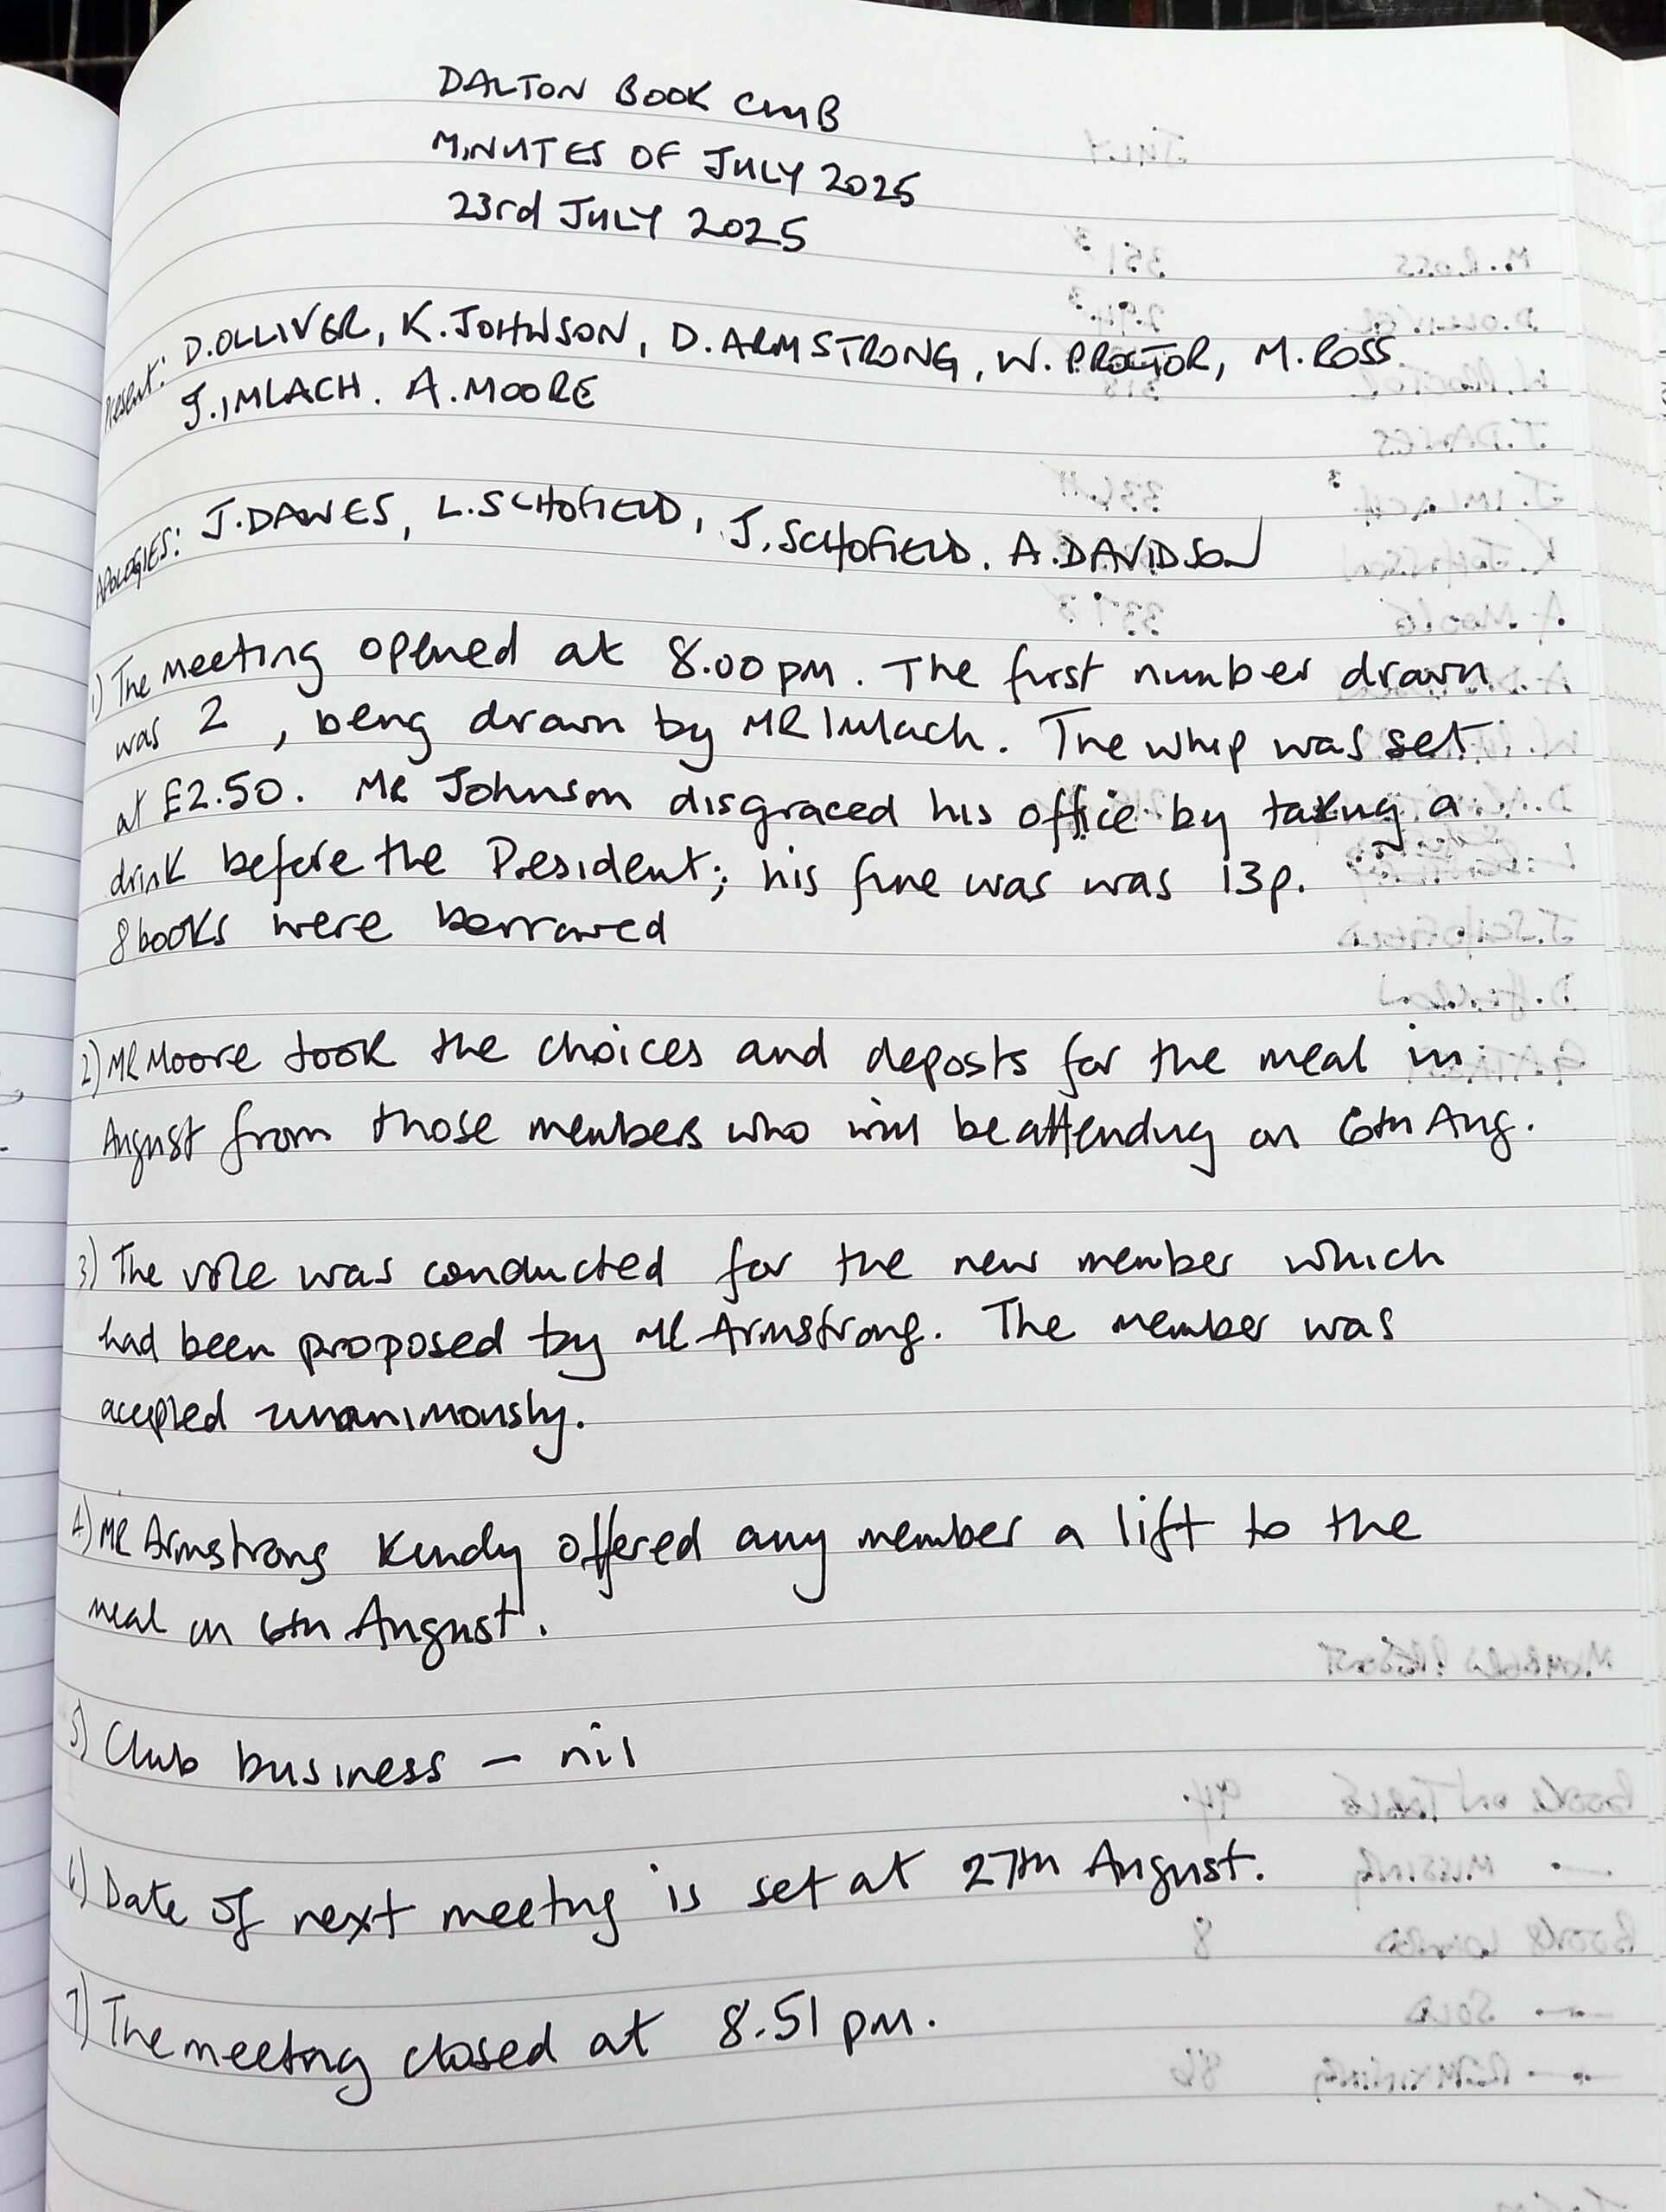 DALTON BOOK CLUB
MINUTES OF JULY 2025
23rd JULY 2025
Present: D.OLLIVER, K.JOHNSON, D.ARMSTRONG, W.PROCTOR, M.ROSS
J.IMLACH. A.MOORE
APOLOGIES: J.DAWES, L.SCHOFIELD, J.SCHOFIELD. A.DAVIDSON
1) The meeting opened at 8.00pm. The first number drawn
was 2, being drawn by MR Imlach. The whip was set
at £2.50. MR Johnson disgraced his office by taking a
drink before the President; his fine was was 13p.
8 books were borrowed
2) MR Moore took the choices and deposts for the meal in
August from those members who will be attending on 6th Aug.
3) The vote was conducted for the new member which
had been proposed by MR Armstrong. The member was
accepted unanimously.
4) MR Armstrong kindly offered any member a lift to the
meal on 6th August.
5) Club business – nil
6) Date of next meeting is set at 27th August.
7) The meeting closed at 8.51 pm.